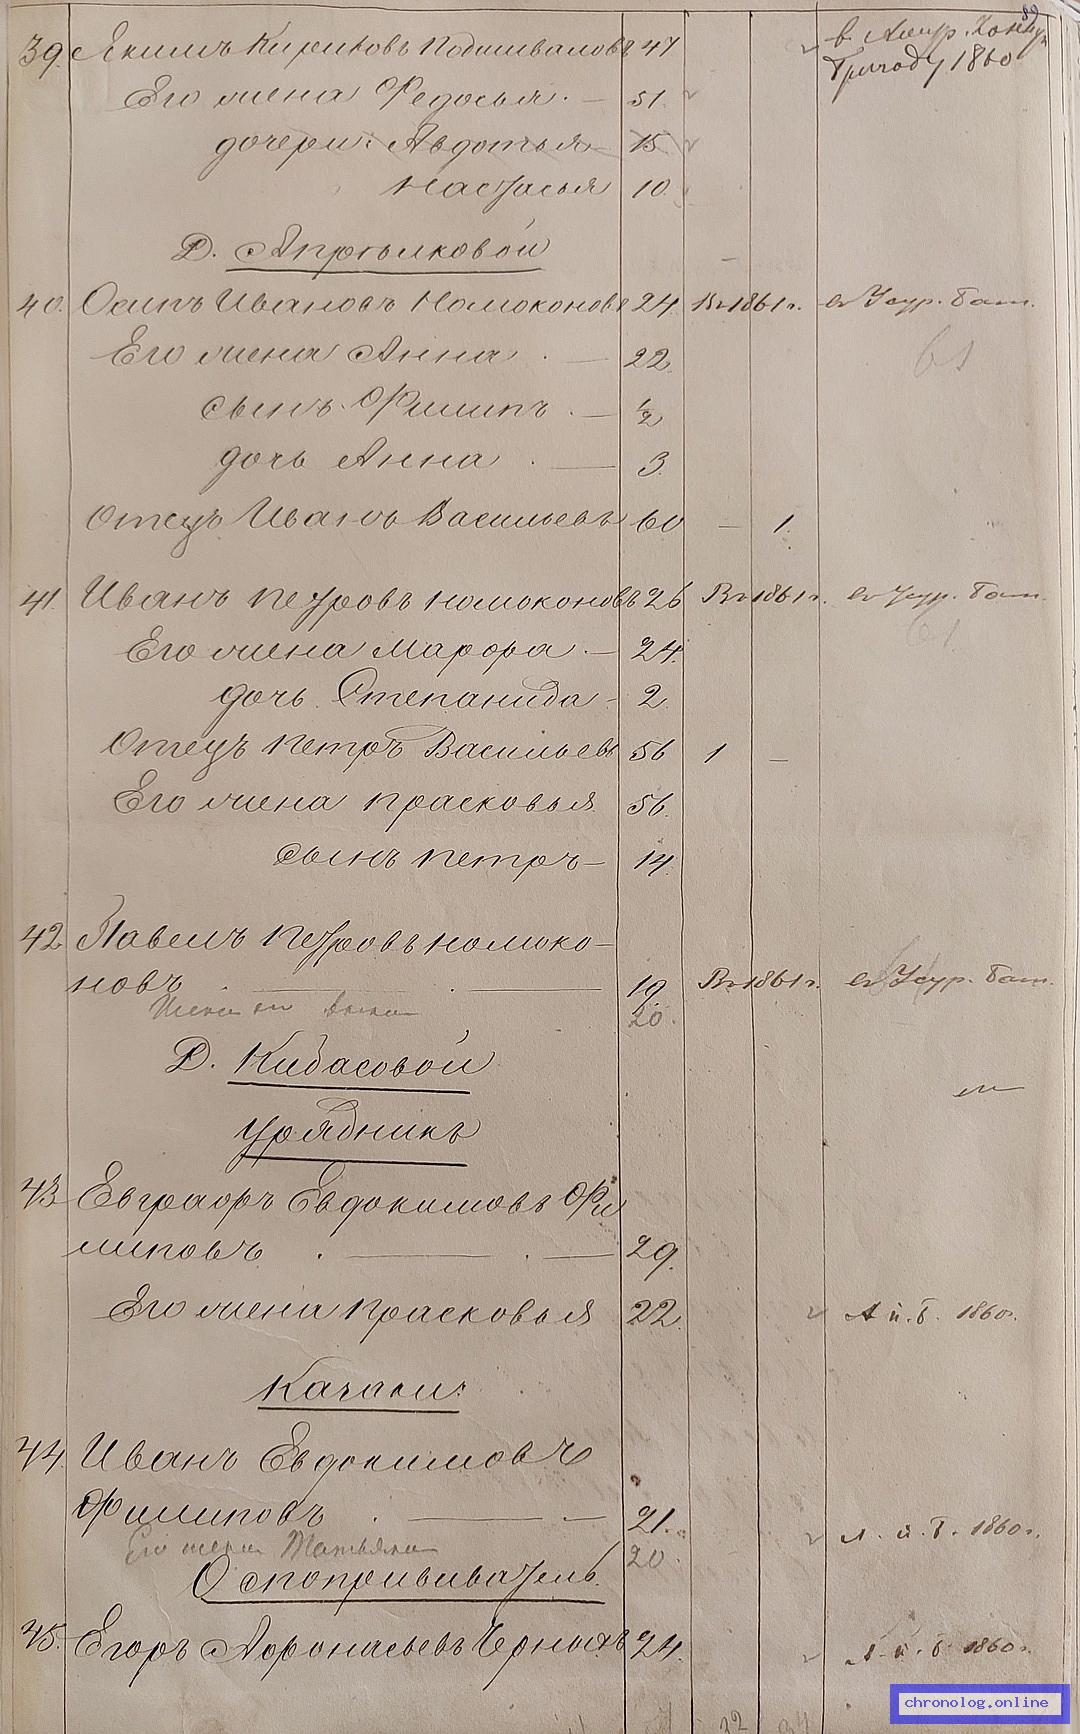 89
39. Якимъ Кириковъ Подшиваловъ 47 в Амур. Конную
Бригаду 1860
Его жена Федосья. — 51.
дочери: Авдотья — 15
Настасья 10.
Д. Апрѣлковой
40. Осипъ Ивановъ Номоконовъ 24. В 1861 г. въ Усур. бат.
Его жена Анна . — 22. 61
сынъ Филипъ . — 1/2
дочь Анна . — 3.
Отецъ Иванъ Васильевъ 60 — 1.
41. Иванъ Петровъ Номоконовъ 26 В 1861 г. въ Усур. бат.
Его жена Марфа . — 24. 61
дочь Степанида - 2.
Отецъ Петръ Васильевъ 56 1 —
Его жена Прасковья 56.
сынъ Петръ — 14.
42. Павелъ Петровъ Номоко-
новъ . — . — 19. В 1861 г. въ Усур. бат.
Жена его 20.
Д. Кибасовой
Урядникъ
43. Евграфъ Евдокимовъ Фи
липовъ . — . — 29.
Его жена Прасковья 22. А. п. б. 1860 г.
Казаки:
44. Иванъ Евдокимовъ
Филиповъ . — — 21. А. п. б. 1860 г.
Его жена Татьяна 20.
Оспопрививатель.
45. Егоръ Афонасьевъ Черныхъ 24. А. п. б. 1860 г.
22 34
chronolog.online